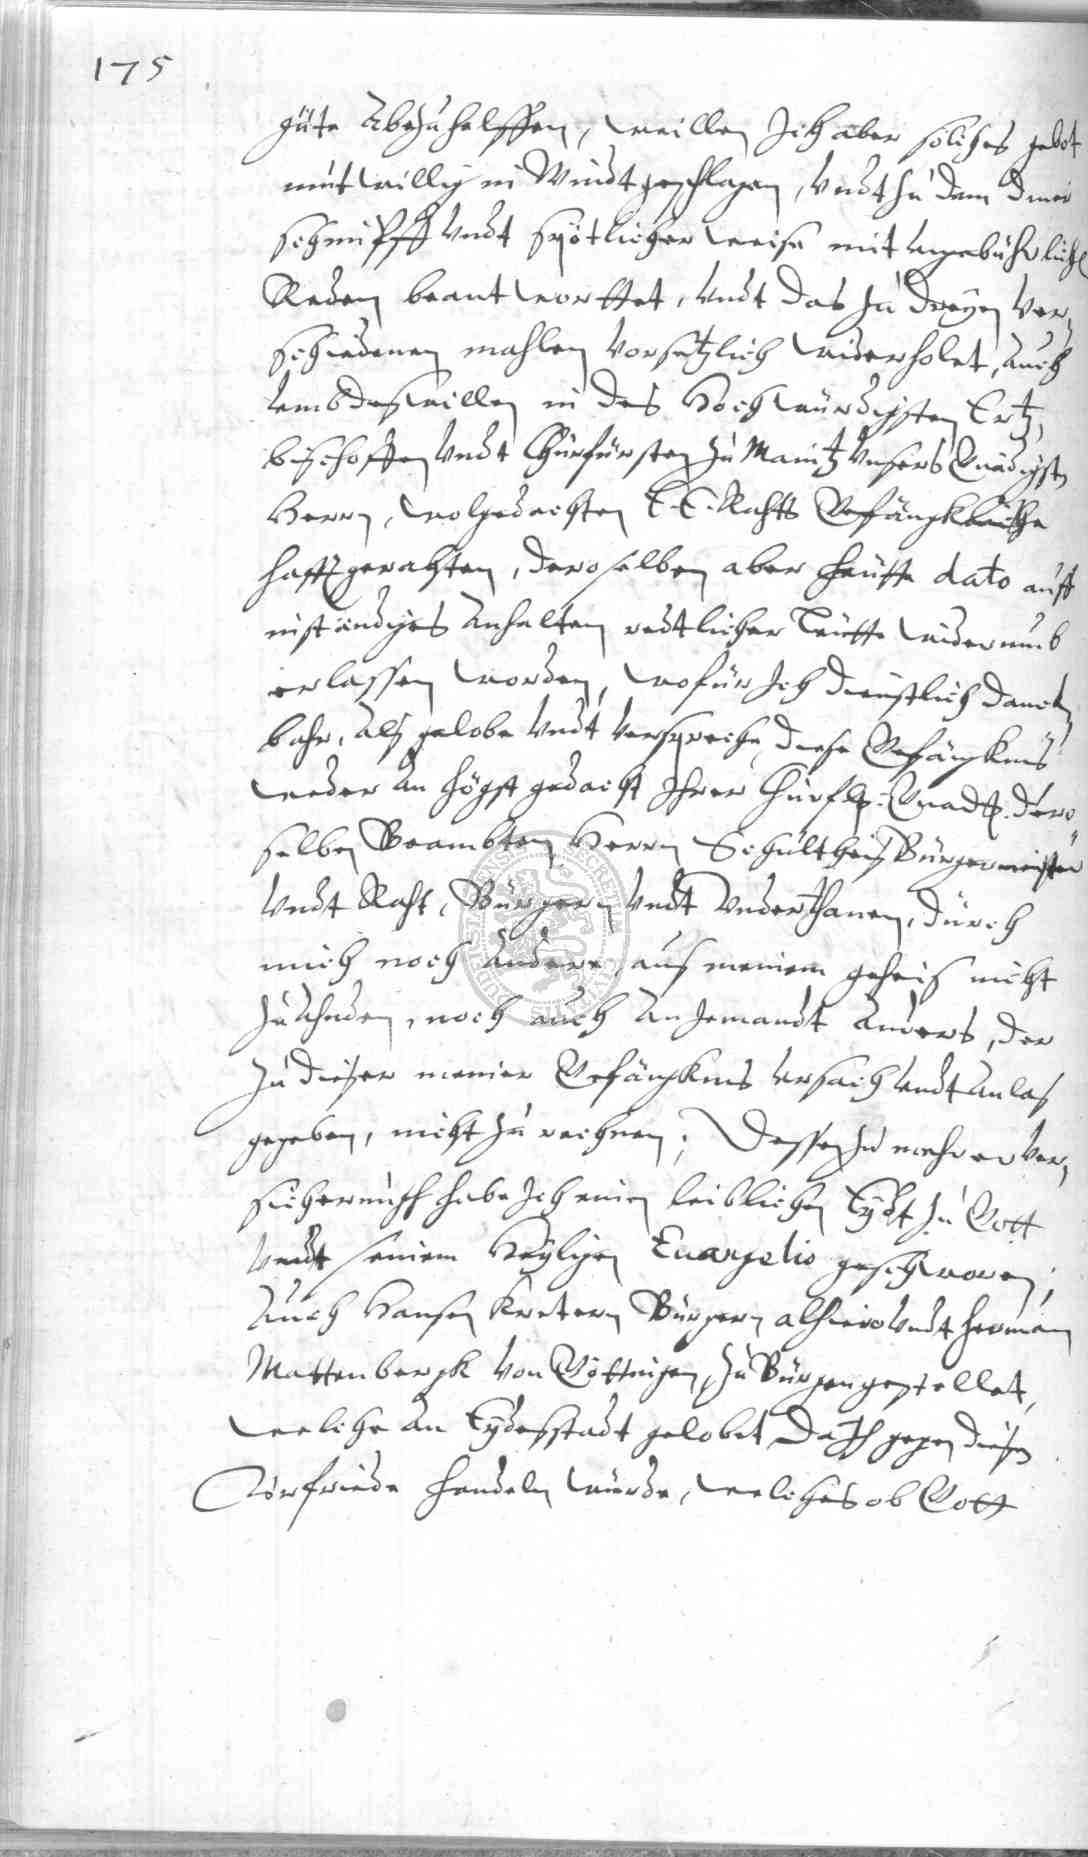 175
güte Abzuhelffen, weillen Ich aber solches gebot
mutwillig in Windt geschlagen, Undt zu dem
schimpff Undt spötlicher weise mit ungebührliche
Reden beantworttet, Undt das zu dreyen Ver,
schiedenen mahlen Vorsetzlich widerholet, Auch
Umb deswillen in des Hochwürdigsten Ertz,
bischoffen Undt Churfürsten zu Maintz Unsers Gnädigst
Herrn, wolgedachten E. E. Rahts Gefängkliche
hafft gerahten, deroselben aber heutte dato auff
inständiges Anhalten redtlicher Leutte widerumb
erlassen worden, wofür Ich dienstlich danck,
bahr, Als gelobe Undt Verspreche, diese Gefängknus
weder An högstgedacht Ihrer Churfl: Gnadt. dero
selben Beambten Herrn Schultheiß Bürgermeister
Undt Raht, Bürgern Undt Underthanen, durch
mich noch Andere, aus meinem geheis nicht
zu Ahnden, noch auch An Jemandt Anders, der
zu dieser meiner Gefängknus Ursach Undt Anlas
gegeben, nicht zu rechnen; Dessen zu mehrer Ver,
sicherung habe Ich einen leiblichen Eydt zu Gott
Undt seinem Heyligen Euangelio geschworen;
Auch Hansen Kretern Bürgern alhiero Undt Herman
Mattenbergk Von Göttingen, zu Bürgen gestellet,
welche An Eydesstadt gelobet, Da Ich gegen diesen
Urfriede handeln würde, welches ob Gott